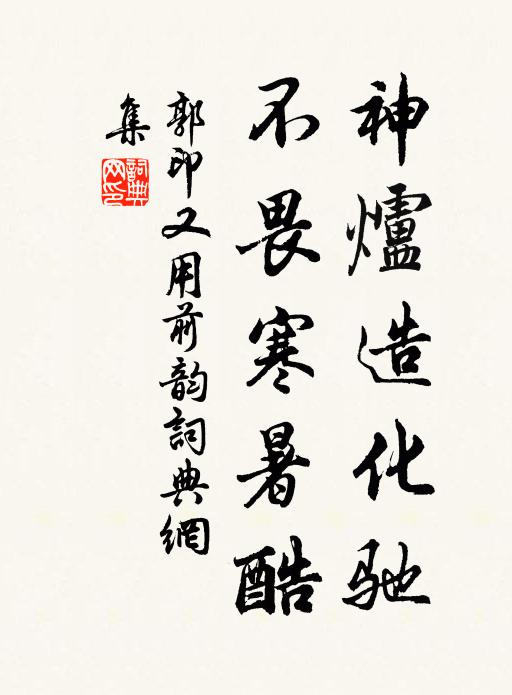 神爐造化驰
不畏寒暑酷
郭印又用前韵詞典網
集
詞典网印